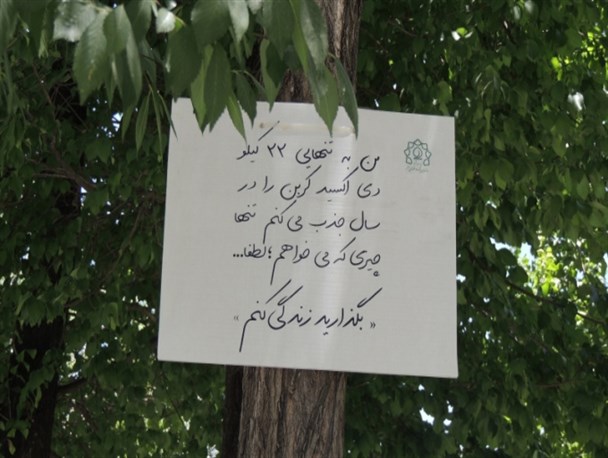 من به تنهایی ۲۲ کیلو
دی اکسید کربن را در
سال جذب می کنم تنها
چیزی که می خواهم ؛ لطفا...
« بگذارید زندگی کنم »